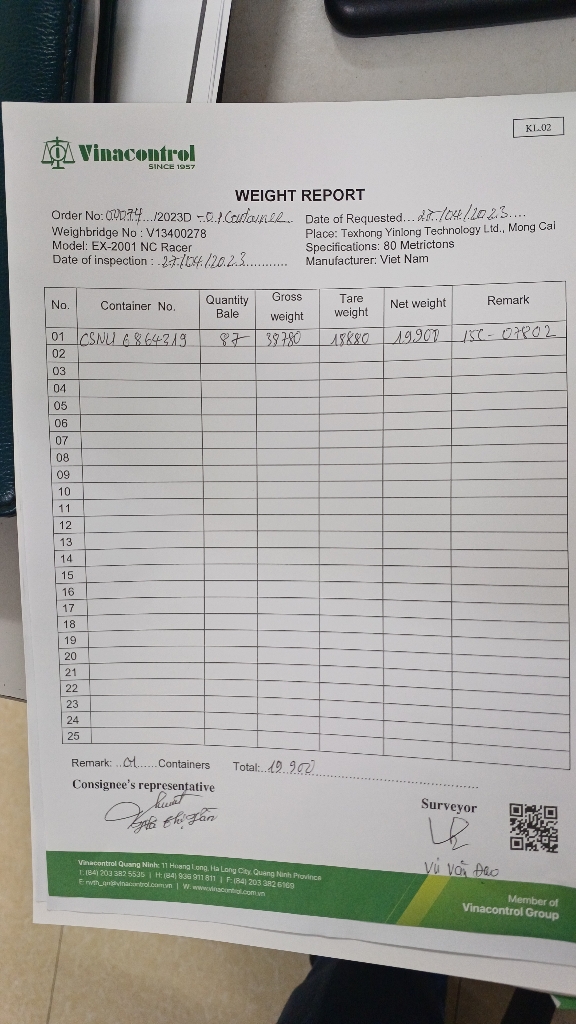 KL.02
Vinacontrol
SINCE 1957
WEIGHT REPORT
Order No: 00074.../2023D - 01 Container
Date of Requested... 27/04/2023....
Weighbridge No : V13400278
Place: Texhong Yinlong Technology Ltd., Mong Cai
Model: EX-2001 NC Racer
Specifications: 80 Metrictons
Date of inspection : 27/04/2023............
Manufacturer: Viet Nam
No. Container No. Quantity Bale Gross weight Tare weight Net weight Remark
01 CSNU 6864319 87 38780 18880 19.900 15C - 07802
02
03
04
05
06
07
08
09
10
11
12
13
14
15
16
17
18
19
20
21
22
23
24
25
Remark: ..01......Containers Total:..19 900
Consignee's representative
Surveyor
Vũ Văn Đạo
Vinacontrol Quang Ninh: 11 Hoang Long, Ha Long City, Quang Ninh Province
T: (84) 203 382 5535 | H: (84) 936 911 811 | F: (84) 203 382 6169
W: www.vinacontrol.com.vn
Member of
Vinacontrol Group